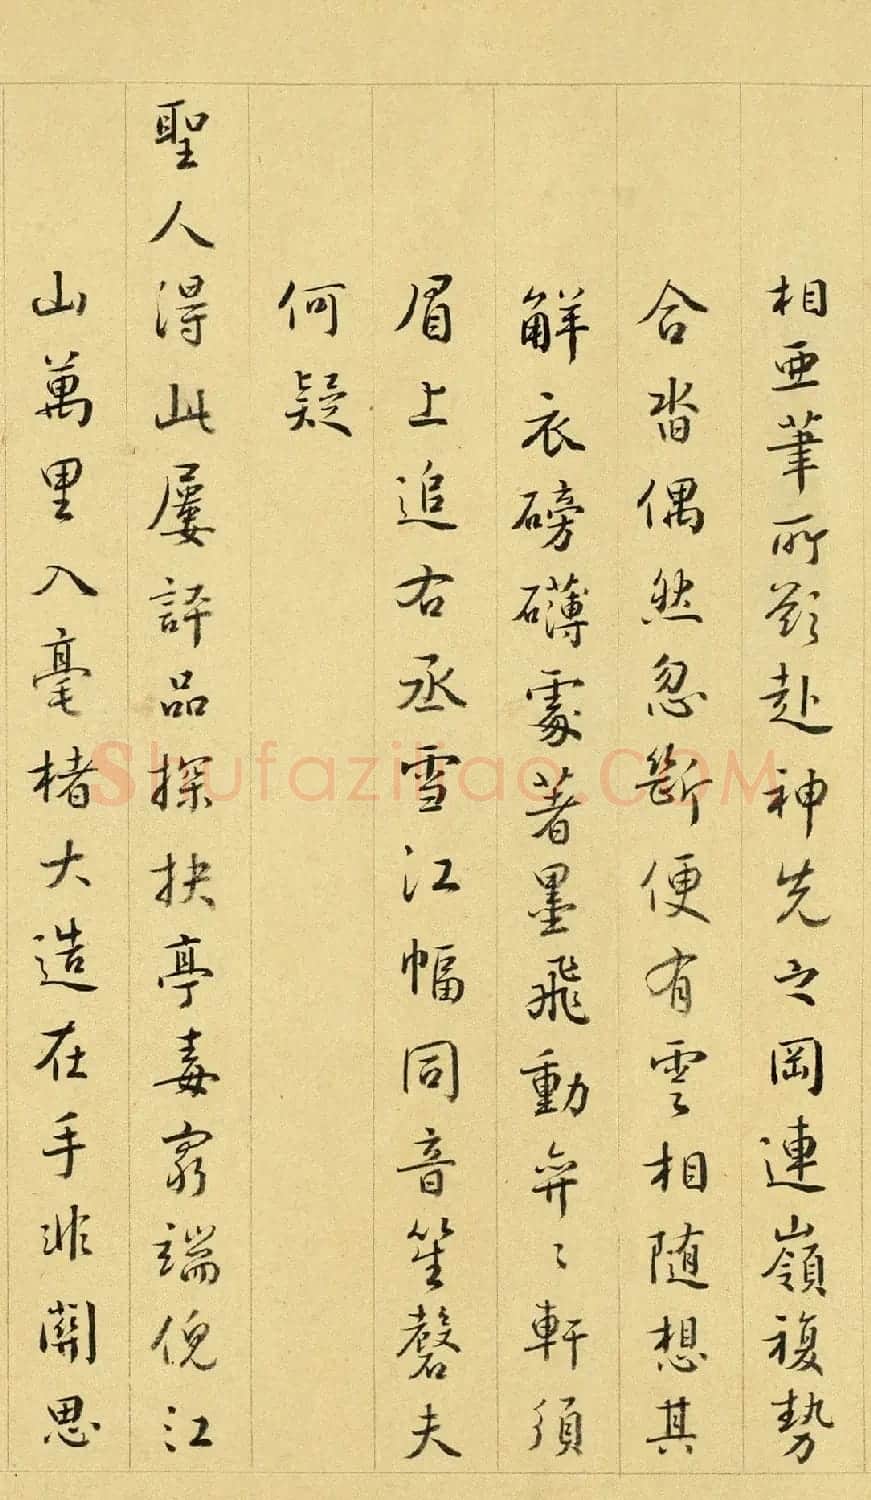 相亞筆所欲赴神先之岡連嶺複勢
合沓偶然忽斷便有雲〻相随想其
解衣磅礴處著墨飛動舞〻軒須
眉上追右丞雪江幅同音笙磬夫
何疑
聖人得此屢評品探抉亭毒窮端倪江
山萬里入毫楮大造在手非關思
Shufaziliao.COM